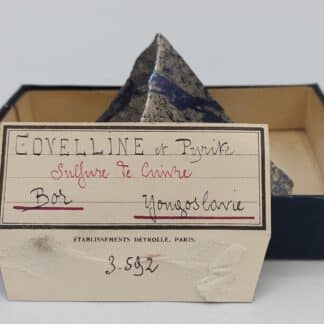 COVELLINE et Pyrite
Sulfure de Cuivre
Bor Yougoslavie
ÉTABLISSEMENTS DEYROLLE, PARIS.
3.592